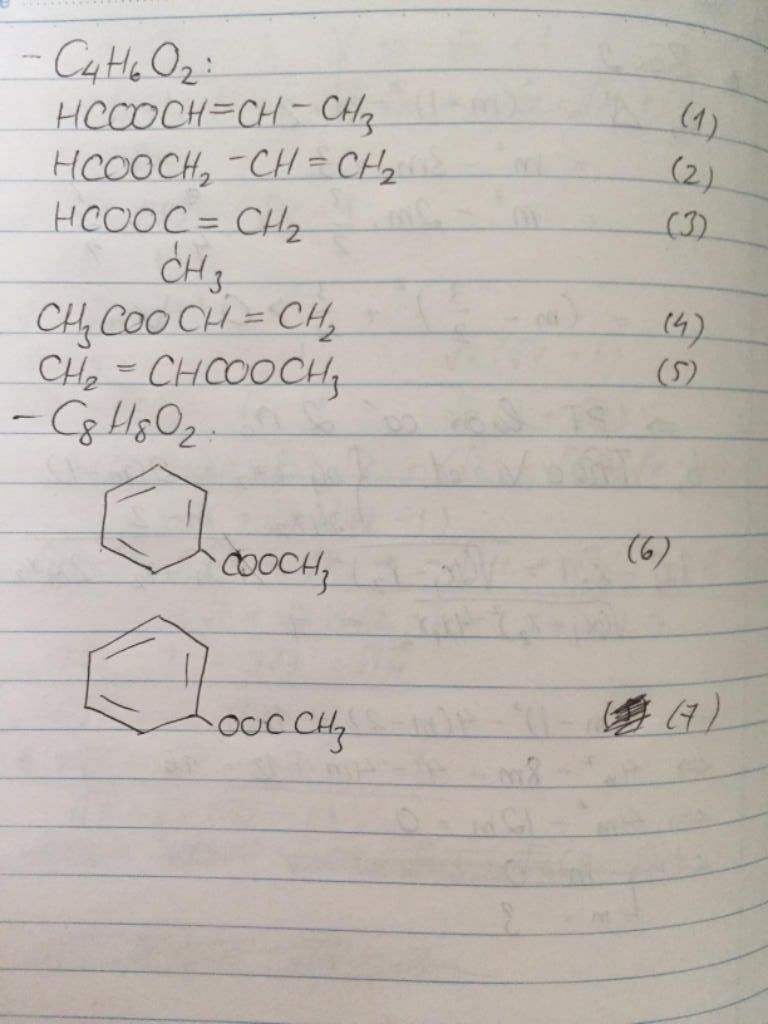 - C₄H₆O₂:
HCOOCH=CH-CH₃ (1)
HCOOCH₂-CH=CH₂ (2)
HCOOC=CH₂ (3)
CH₃
CH₃COOCH=CH₂ (4)
CH₂=CHCOOCH₃ (5)
- C₈H₈O₂:
COOCH₃ (6)
OOCCH₃ (7)